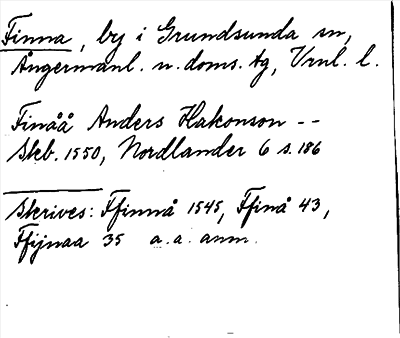 Finna, by i Grundsunda sn,
Ångermanl. n. doms. tg, Vrnl. l.
Finåå Anders Hakonson --
Skb. 1550, Nordlander 6 s. 186
Skrives: Ffinnå 1545, Ffinå 43,
Ffijnaa 35 a. a. anm.